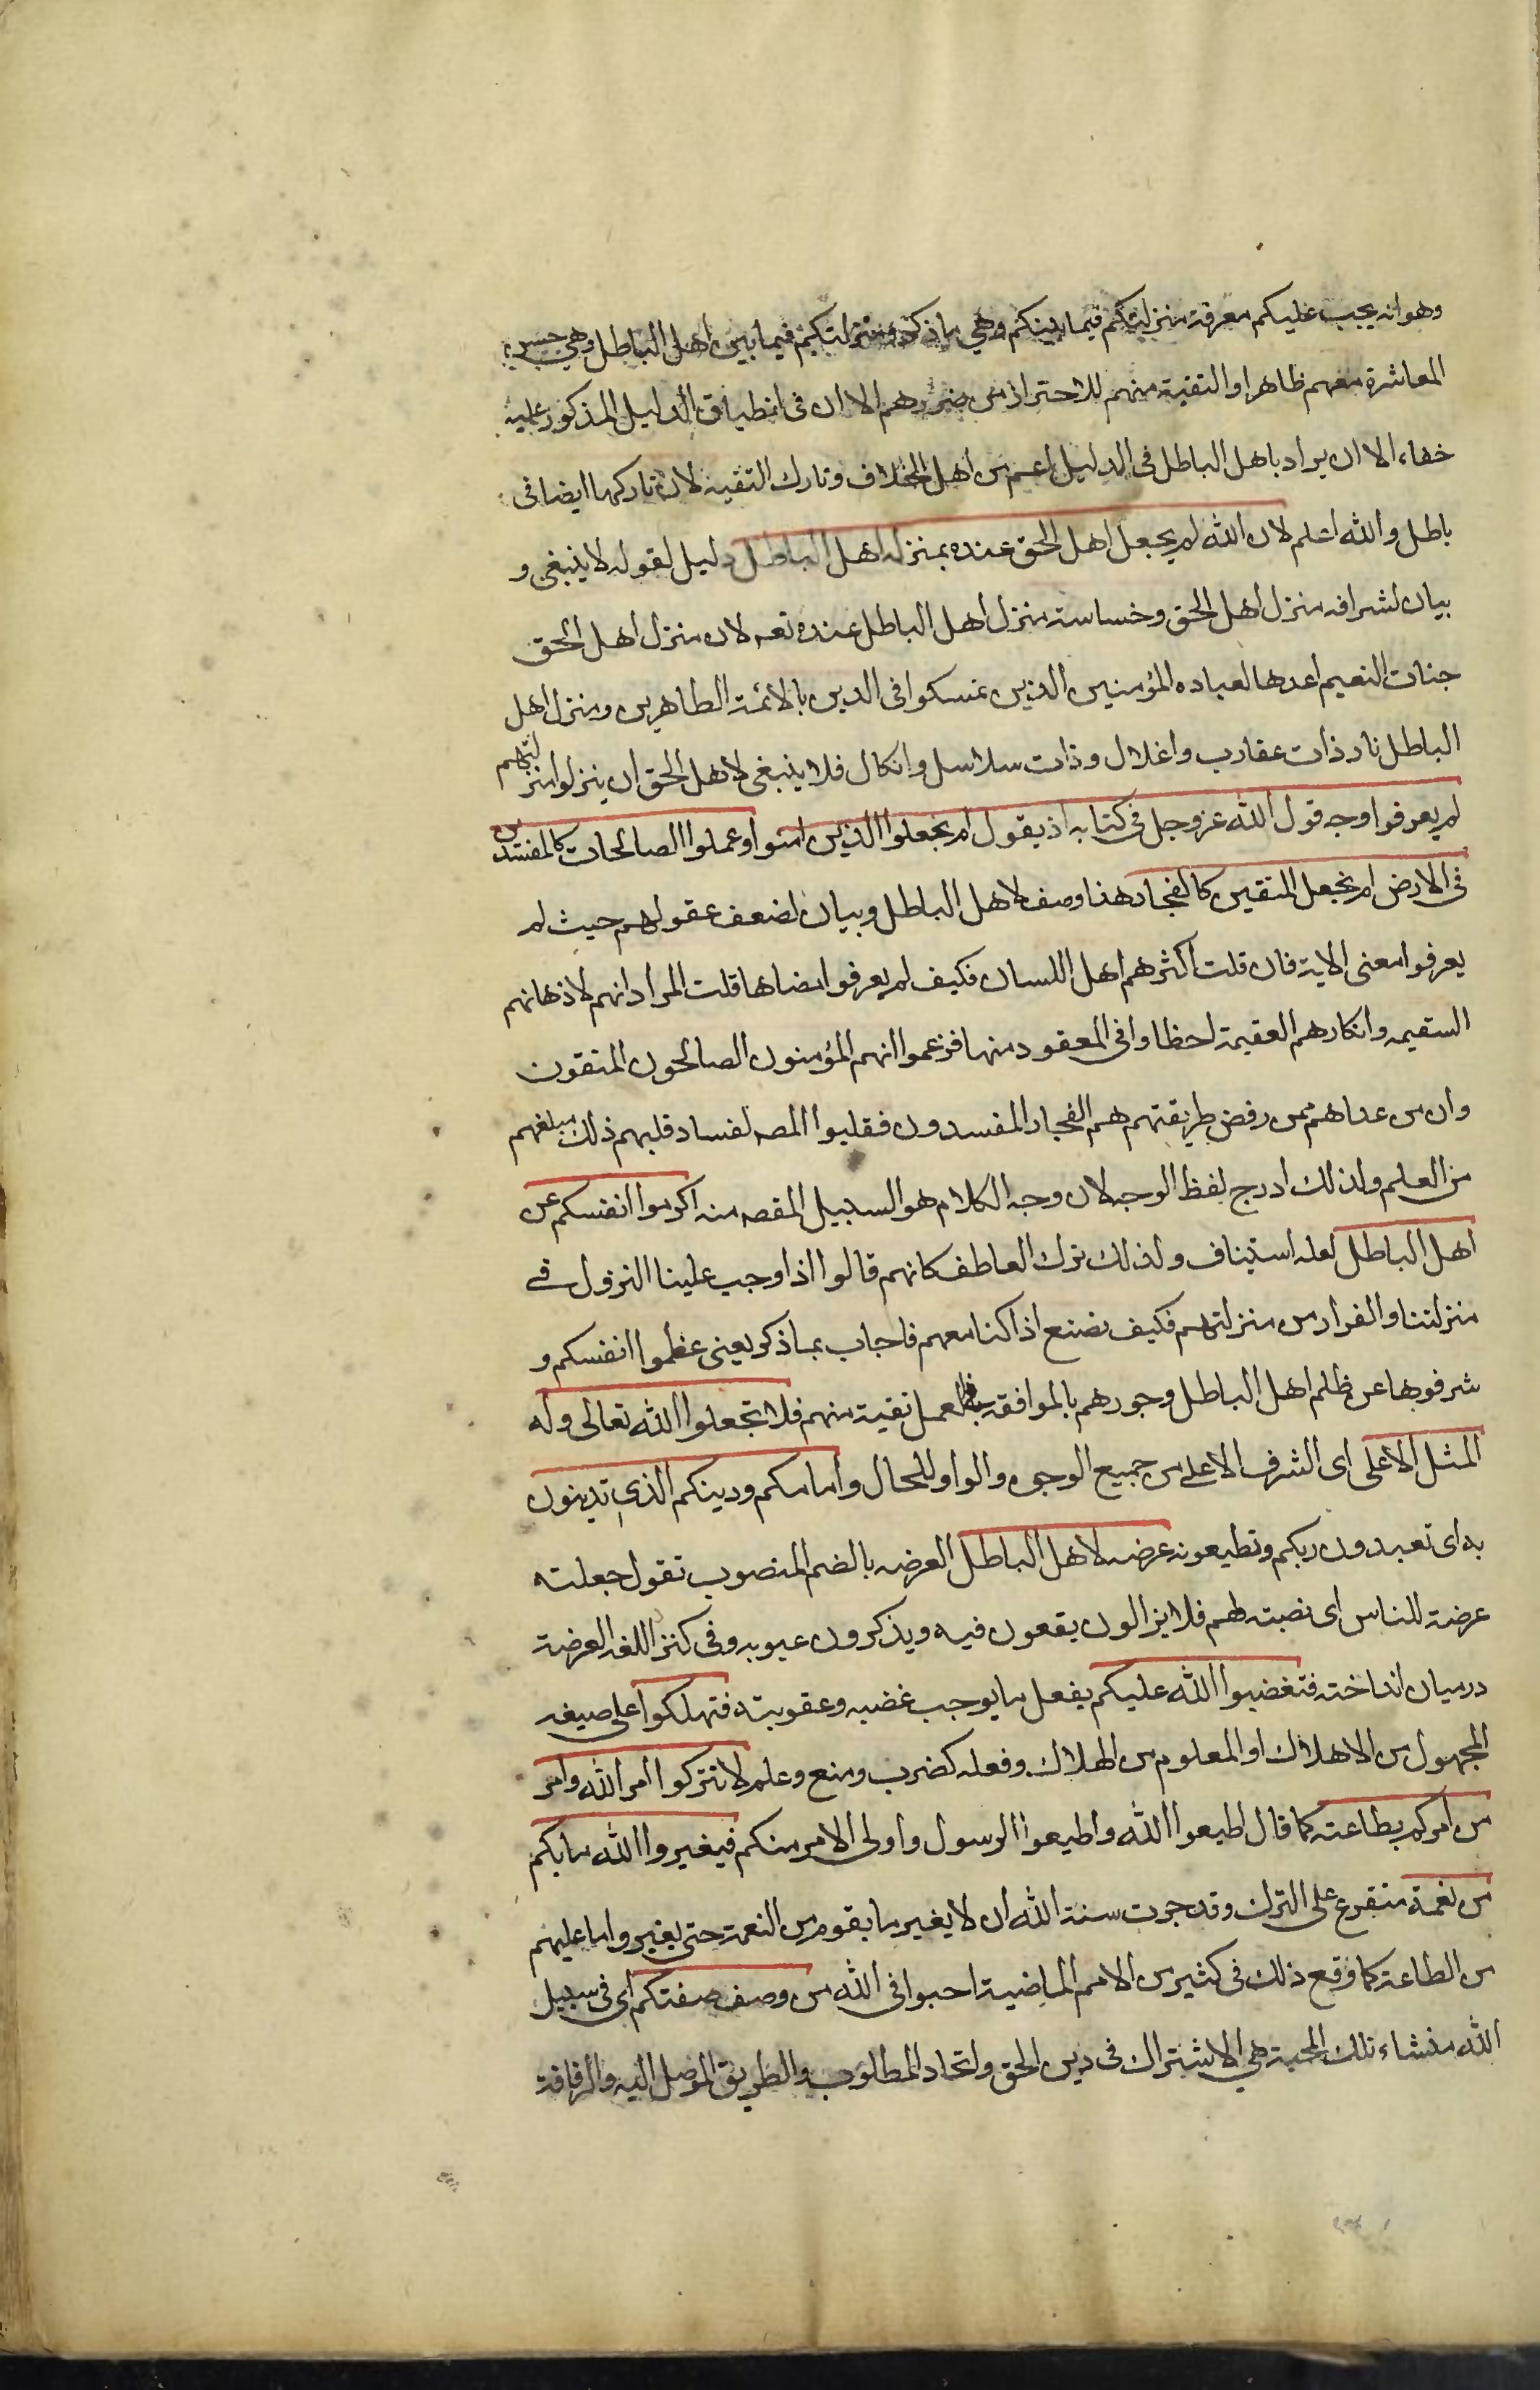 وهو انه يجب عليكم معرفة منزلتكم فيما بينكم وهي ما ذكر ومنزلتكم فيما بين اهل الباطل وهي حسن
المعاشرة معهم ظاهرا والتقية منهم للاحتراز من ضررهم الا ان في انطباق الدليل المذكور عليه
خفاء الا ان يراد باهل الباطل في الدليل اعم من اهل الخلاف وتارك التقية لان تاركها ايضا في
باطل والله اعلم لان الله لم يجعل اهل الحق عنده بمنزلة اهل الباطل دليل لقوله لا ينبغي و
بيان لشرافة منزل اهل الحق وخساسة منزل اهل الباطل عنده تعه لان منزل اهل الحق
جنات النعيم اعدها لعباده المؤمنين الذين تمسكوا في الدين بالائمة الطاهرين ومنزل اهل
الباطل نار ذات عقارب واغلال وذات سلاسل وانكال فلا ينبغي لاهل الحق ان ينزلوا منزلتهم
لم يعرفوا وجه قول الله عز وجل في كتابه اذ يقول ام نجعل الذين امنوا وعملوا الصالحات كالمفسدين
في الارض ام نجعل المتقين كالفجار هذا وصف لاهل الباطل وبيان لضعف عقولهم حيث لم
يعرفوا معنى الاية فان قلت اكثرهم اهل اللسان فكيف لم يعرفوا معناها قلت المراد انهم لاذهانهم
السقيمه وانكارهم العقيمة لحظا وافي المعقود منها فزعموا انهم المؤمنون الصالحون المتقون
وان من عداهم ممن رفض طريقتهم هم الفجار المفسدون فقلبوا المصه لفساد قلبهم ذلك مبلغهم
من العلم ولذلك ادرج لفظ الوجه لان وجه الكلام هو السبيل المقصه منه اكرموا انفسكم عن
اهل الباطل لعله استيناف ولذلك ترك العاطف كانهم قالوا اذا وجب علينا النزول في
منزلتنا والفرار من منزلتهم فكيف نصنع اذا كنا معهم فاجاب بما ذكر يعني عظموا انفسكم و
شرفوها عن ظلم اهل الباطل وجورهم بالموافقة بالعمل تقية منهم فلا تجعلوا الله تعالى وله
المثل الاعلى اى الشرف الاعلى من جميع الوجوه والواو للحال وامامكم ودينكم الذي تدينون
به اى تعبدون ربكم وتطيعونه عرضه لاهل الباطل العرضه بالضم المنصوب تقول جعلته
عرضة للناس اى نصبته لهم فلا يزالون يقعون فيه ويذكرون عيوبه وفي كنز اللغه العرضة
درميان انداخته فتغضبوا الله عليكم بفعل ما يوجب غضبه وعقوبته فتهلكوا على صيغه
المجهول من الاهلاك او المعلوم من الهلاك وفعله كضرب ومنع وعلم لا تتركوا امر الله وامر
من امركم بطاعته كما قال اطيعوا الله واطيعوا الرسول واولى الامر منكم فيغيروا الله ما بكم
من نعمة متفرع على الترك وقد جرت سنة الله ان لا يغير ما بقوم من النعمة حتى يغيروا ما عليهم
من الطاعة كما وقع ذلك في كثير من الامم الماضية احبوا في الله من وصف صفتكم اى في سبيل
الله منشاء تلك المحبة هي الاشتراك في دين الحق واتحاد المطلوب والطريق الموصل اليه والرفاقة